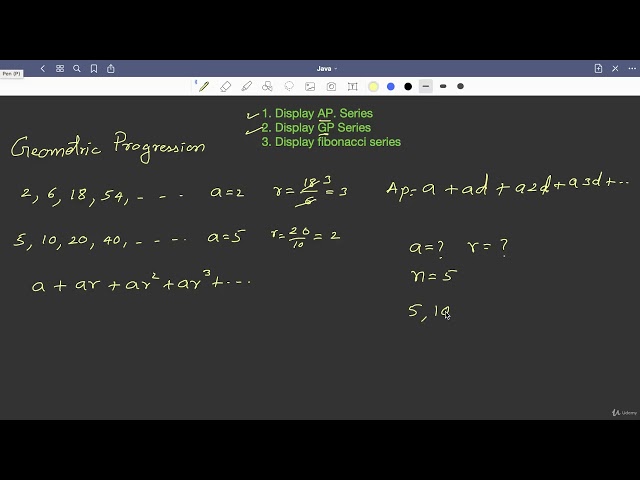 Java
Pen (P)
1. Display AP. Series
2. Display GP Series
3. Display fibonacci series
Geometric Progression
2, 6, 18, 54, - - - - a=2 r = 18/6 = 3 3
AP = a + ad + a2d + a3d + ...
5, 10, 20, 40, - - - - a=5 r = 20/10 = 2
a=? r=?
n=5
a + ar + ar² + ar³ + ...
5, 10
Udemy